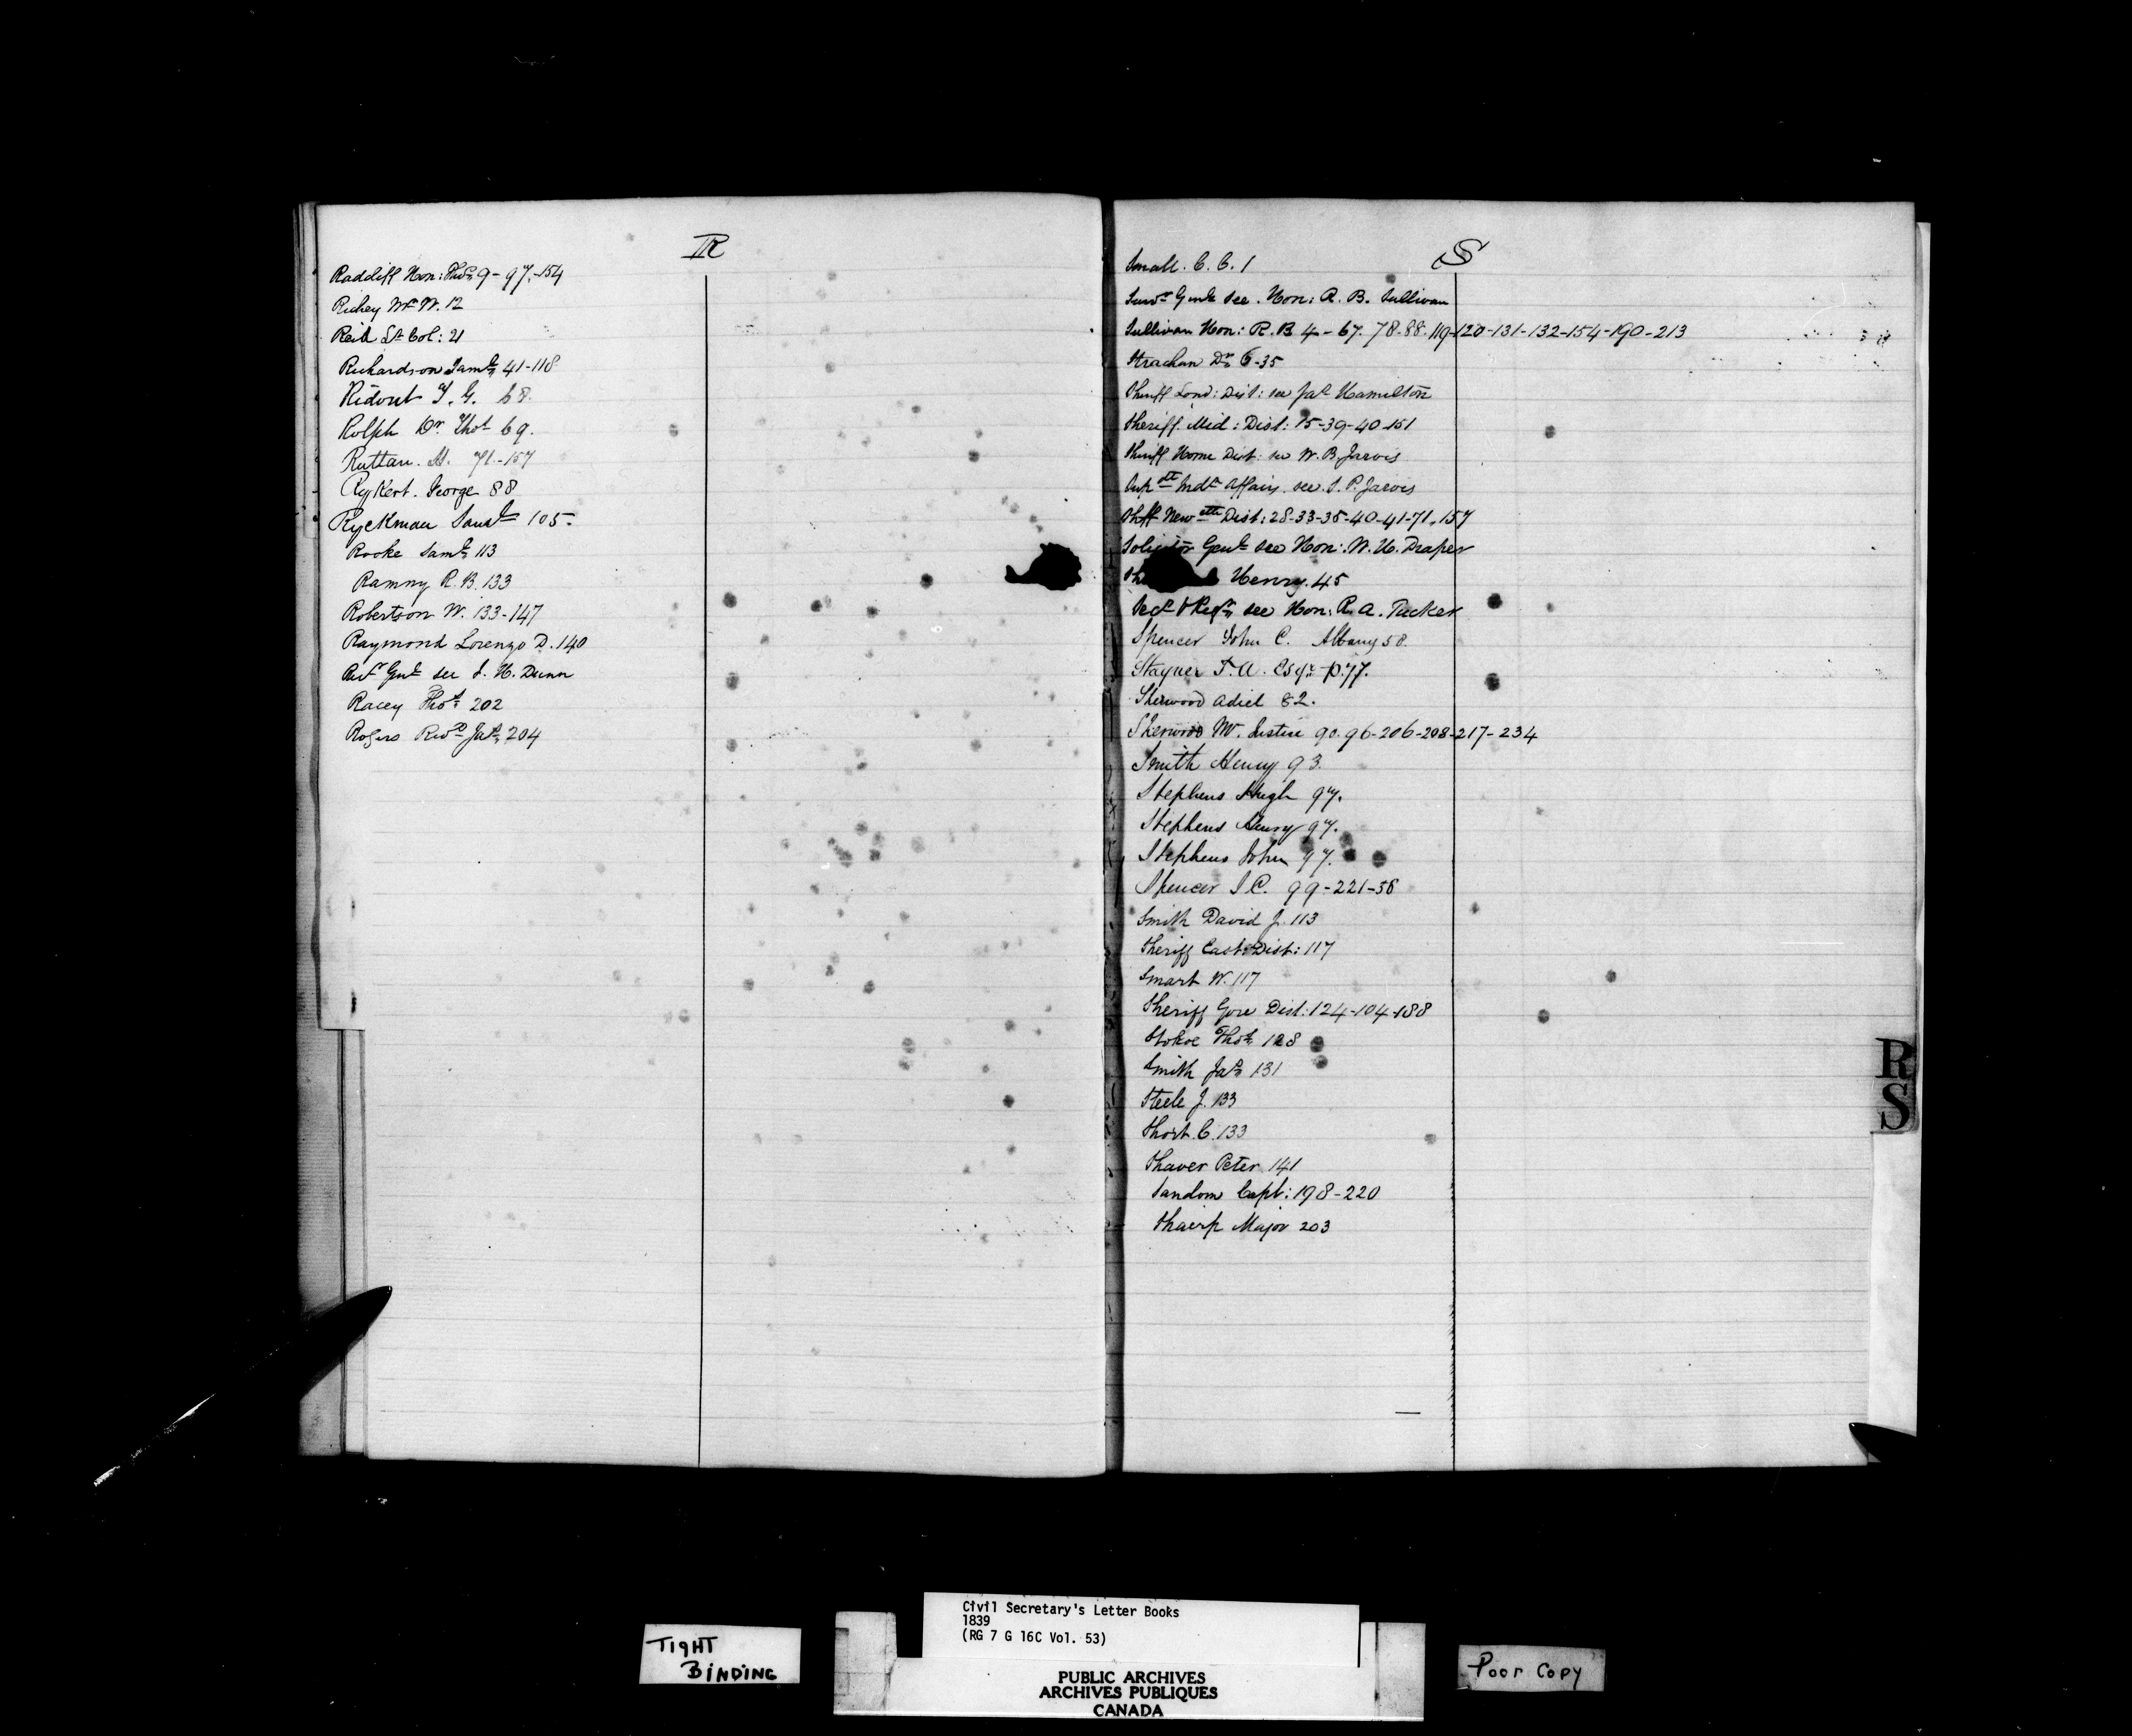 R
Radcliff Hon: Thos 9-97-154
Richey Mr W. 12
Reid Lt Col: 21
Richardson Saml 41-118
Ridout T. G. 68
Rolph Dr Thos 69.
Ruttan. H. 71-157
Rykert. George 88
Ryckman Saml 105-
Rooke Saml 113
Ramny R. B. 133
Robertson W. 133-147
Raymond Lorenzo D. 140
Recr Genl see J. H. Dunn
Racey Thos 202
Rogers Revd Jas 204
S
Small. C. C. 1
Survr Genl see. Hon: R. B. Sullivan
Sullivan Hon: R. B 4-67. 78-88. 119-120-131-132-154-190-213
Strachan Dr 6-35
Sheriff Lond: Dist: see Jas Hamilton
Sheriff. Mid: Dist: 15-39-40-151
Sheriff Home Dist: see W. B. Jarvis
Supdt Indn Affairs. see. S. P. Jarvis
Shff Newctle Dist: 28-33-35-40-41-71-157
Solicitor Genl see Hon: W. H. Draper
Henry. 45
Secy & Regr see Hon: R. A. Tucker
Spencer John C. Albany 58.
Stayner T. A. Esqr p. 77.
Sherwood Adiel 82.
Sherwood Mr. Justice 90. 96-206-208-217-234
Smith Henry 93.
Stephens Hugh 97.
Stephens Henry 97.
Stephens John 97.
Spencer J. C. 99-221-58
Smith David J. 113
Sheriff East: Dist: 117
Smart W. 117
Sheriff Gore Dist: 124-104-188
Stokoe Thos 128
Smith Jas 131
Steele J. 133
Short. C. 133
Shaver Peter 141
Sandom Capt: 198-220
Shairp Major 203
R
S
TIGHT
BINDING
Civil Secretary's Letter Books
1839
(RG 7 G 16C Vol. 53)
PUBLIC ARCHIVES
ARCHIVES PUBLIQUES
CANADA
Poor Copy